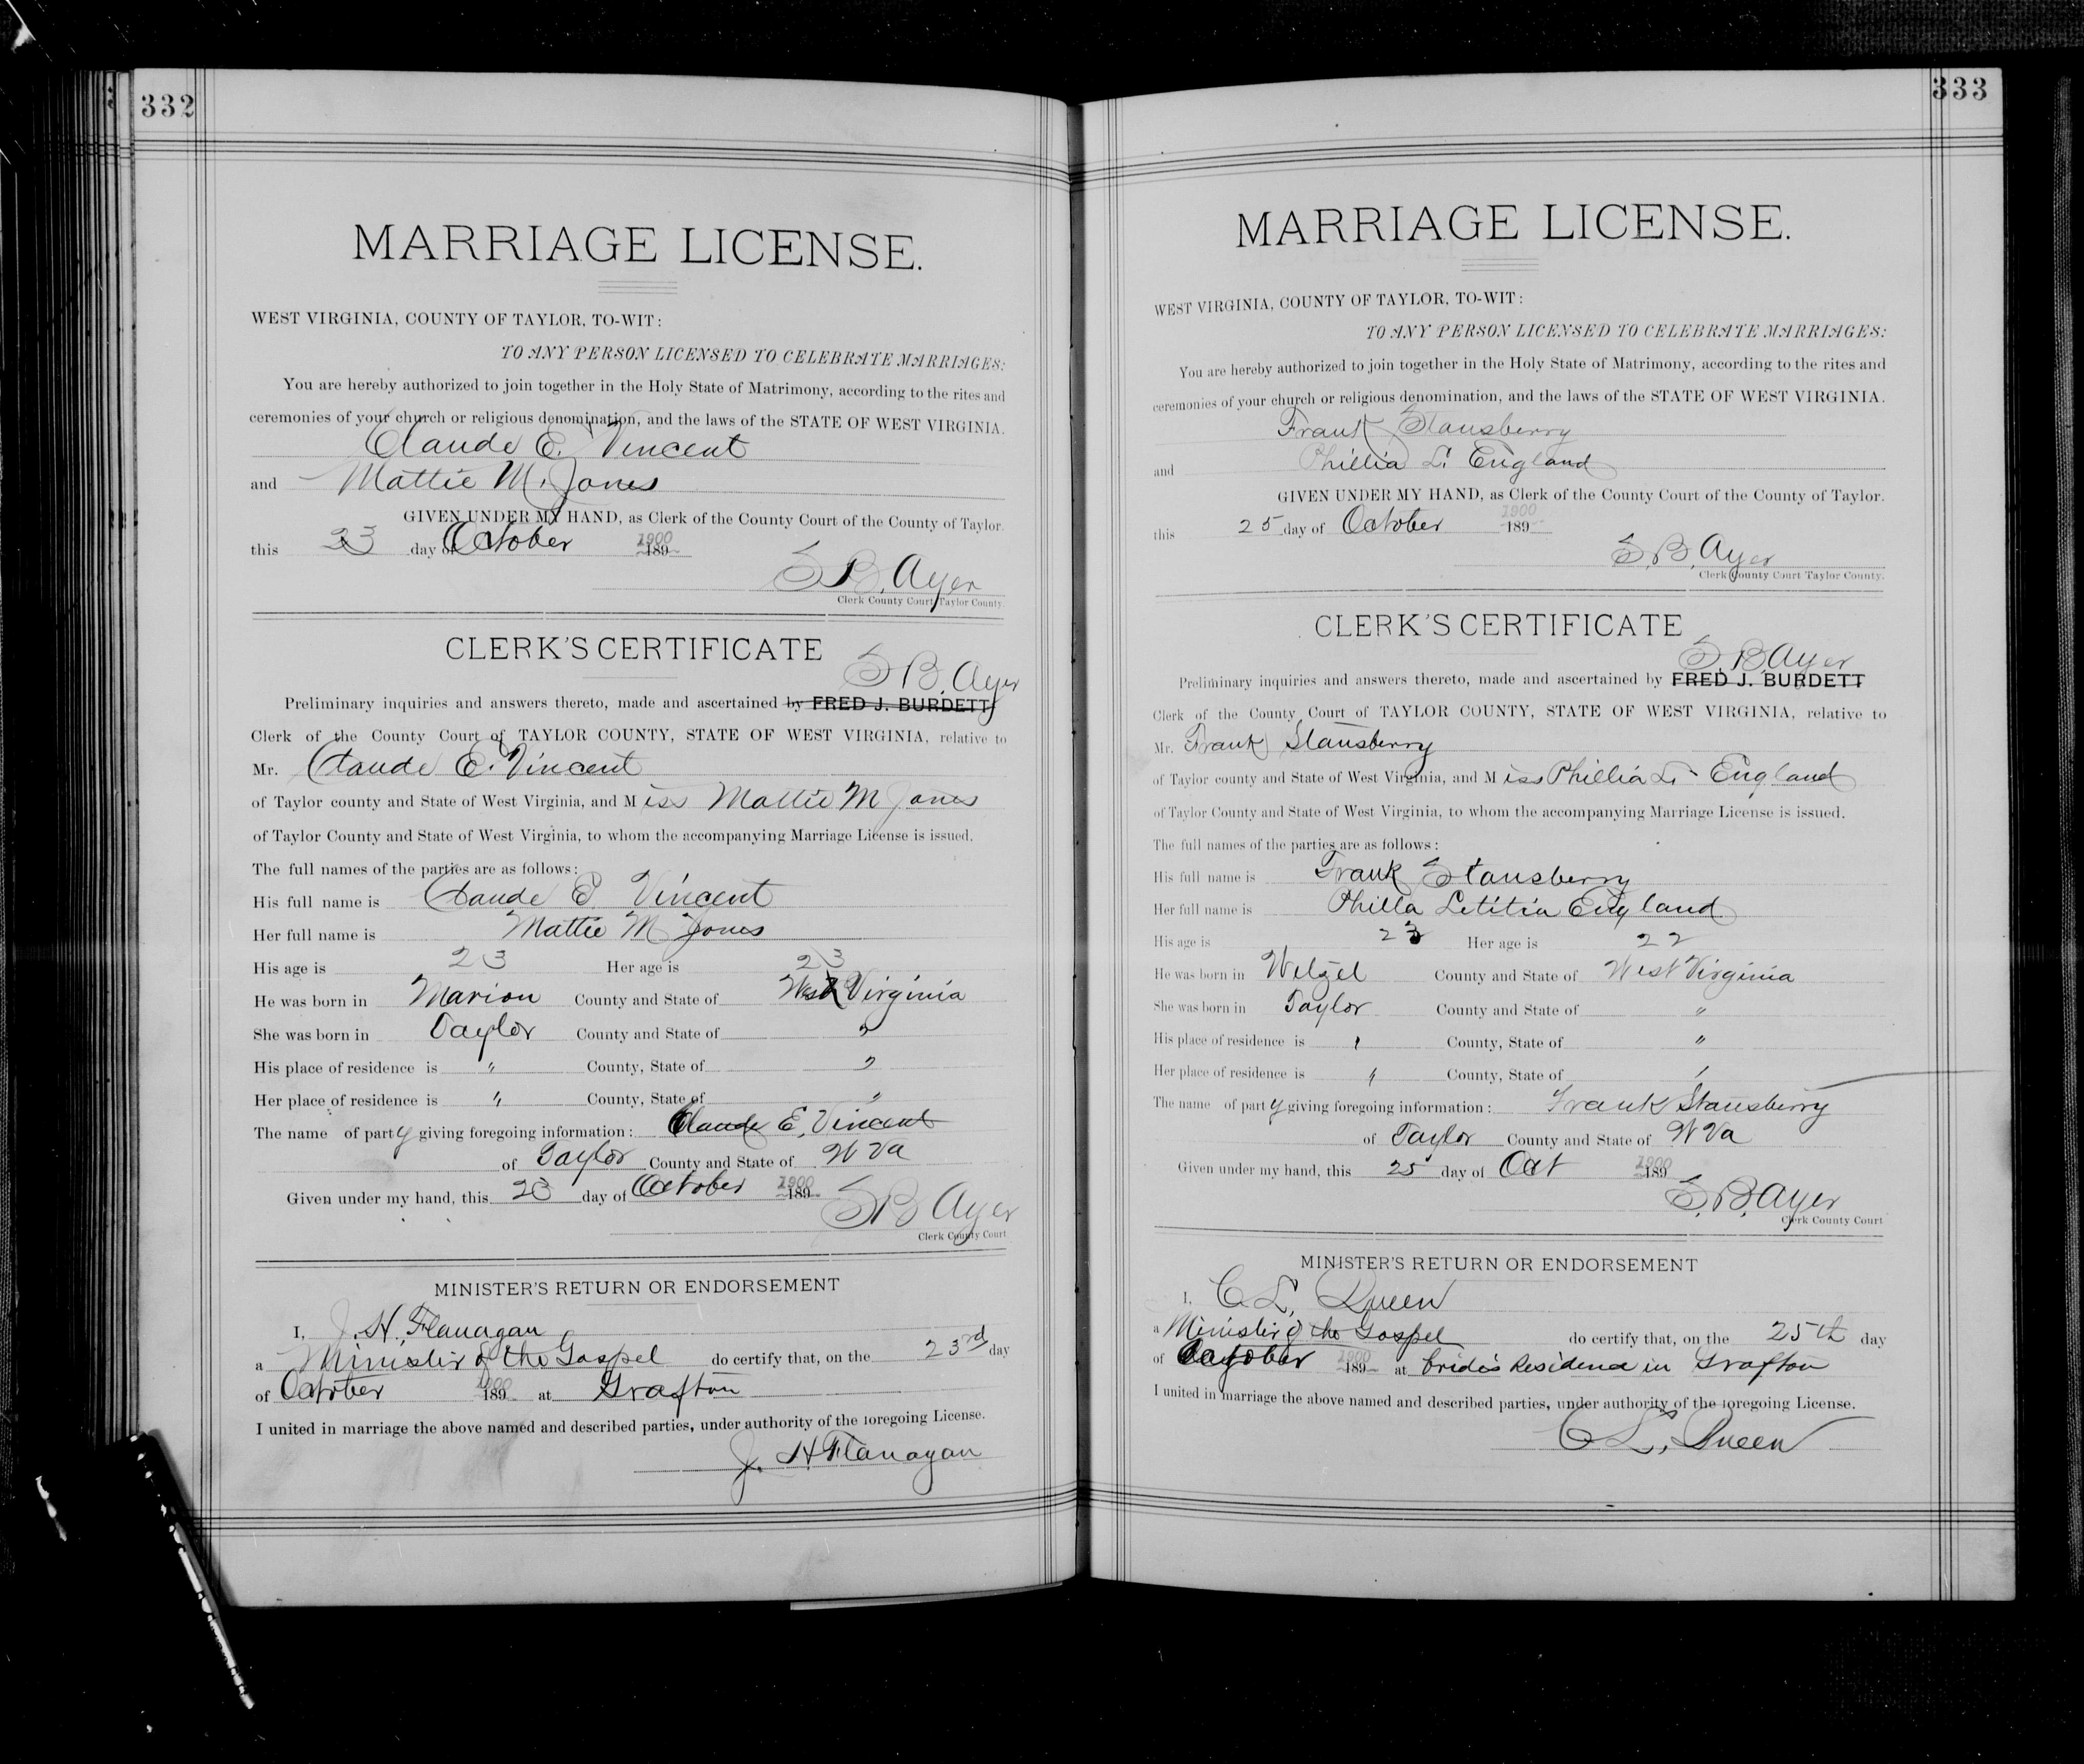 332
MARRIAGE LICENSE.
WEST VIRGINIA, COUNTY OF TAYLOR, TO-WIT:
TO ANY PERSON LICENSED TO CELEBRATE MARRIAGES:
You are hereby authorized to join together in the Holy State of Matrimony, according to the rites and
ceremonies of your church or religious denomination, and the laws of the STATE OF WEST VIRGINIA.
Claude E. Vincent
and Mattie M. Jones
GIVEN UNDER MY HAND, as Clerk of the County Court of the County of Taylor.
this 23 day of October 1900 189
S B. Ayer
Clerk County Court Taylor County.
CLERK'S CERTIFICATE
S B. Ayer
Preliminary inquiries and answers thereto, made and ascertained by FRED J. BURDETT
Clerk of the County Court of TAYLOR COUNTY, STATE OF WEST VIRGINIA, relative to
Mr. Claude E. Vincent
of Taylor county and State of West Virginia, and Miss Mattie M Jones
of Taylor County and State of West Virginia, to whom the accompanying Marriage License is issued.
The full names of the parties are as follows:
His full name is Claude E. Vincent
Her full name is Mattie M Jones
His age is 23 Her age is 23
He was born in Marion County and State of West Virginia
She was born in Taylor County and State of "
His place of residence is " County, State of "
Her place of residence is " County, State of "
The name of party giving foregoing information: Claude E. Vincent
of Taylor County and State of W Va
Given under my hand, this 23 day of October 1900 189
S B Ayer
Clerk County Court
MINISTER'S RETURN OR ENDORSEMENT
I, J. H. Flanagan
a Minister of the Gospel do certify that, on the 23rd day
of October 1900 189 at Grafton
I united in marriage the above named and described parties, under authority of the foregoing License.
J. H Flanagan
333
MARRIAGE LICENSE.
WEST VIRGINIA, COUNTY OF TAYLOR, TO-WIT:
TO ANY PERSON LICENSED TO CELEBRATE MARRIAGES:
You are hereby authorized to join together in the Holy State of Matrimony, according to the rites and
ceremonies of your church or religious denomination, and the laws of the STATE OF WEST VIRGINIA.
Frank Stansberry
and Phillia L. England
GIVEN UNDER MY HAND, as Clerk of the County Court of the County of Taylor.
this 25 day of October 1900 189
S. B. Ayer
Clerk County Court Taylor County.
CLERK'S CERTIFICATE
S. B. Ayer
Preliminary inquiries and answers thereto, made and ascertained by FRED J. BURDETT
Clerk of the County Court of TAYLOR COUNTY, STATE OF WEST VIRGINIA, relative to
Mr. Frank Stansberry
of Taylor county and State of West Virginia, and Miss Phillia L. England
of Taylor County and State of West Virginia, to whom the accompanying Marriage License is issued.
The full names of the parties are as follows:
His full name is Frank Stansberry
Her full name is Philla Letitia England
His age is 23 Her age is 22
He was born in Wetzel County and State of West Virginia
She was born in Taylor County and State of "
His place of residence is " County, State of "
Her place of residence is " County, State of "
The name of party giving foregoing information: Frank Stansberry
of Taylor County and State of W Va
Given under my hand, this 25 day of Oct 1900 189
S. B. Ayer
Clerk County Court
MINISTER'S RETURN OR ENDORSEMENT
I, C. L. Queen
a Minister of the Gospel do certify that, on the 25th day
of October 1900 189 at bride's Residence in Grafton
I united in marriage the above named and described parties, under authority of the foregoing License.
C L. Queen